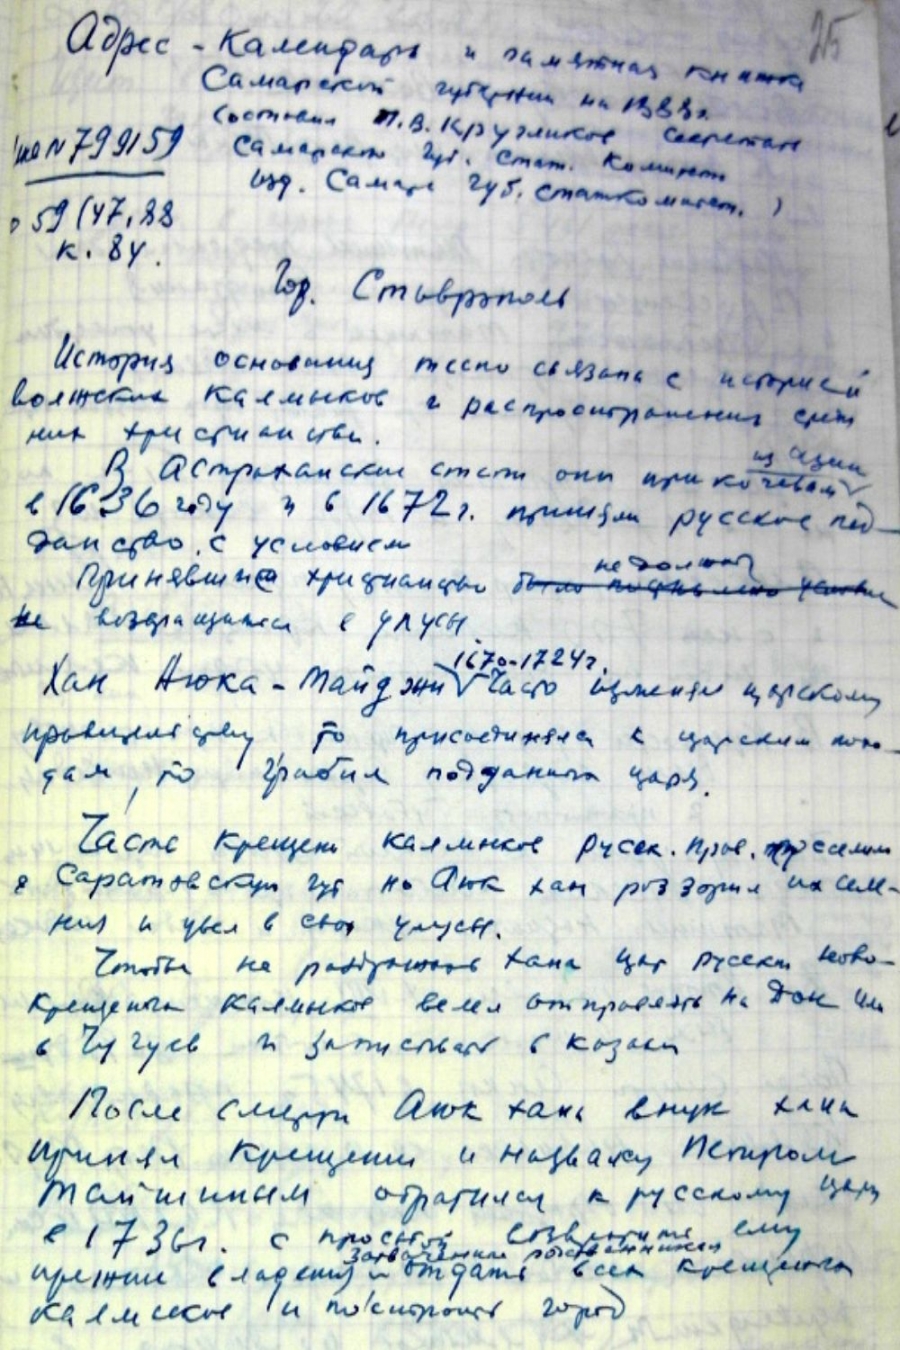 25
Адрес - Календарь и памятная книжка
Самарской губернии на 1888г.
составил П.В. Кругликов секретарь
Самарского Губ. Стат. Комитета
изд. Самара Губ. статкомитет. )
N 799159
59 (47,88
К. 84.
Гор. Ставрополь
История основания тесно связана с историей
волжских калмыков и распространения среди
них христианства.
В Астраханские степи они прикочевали из Азии
в 1636 году и в 1672г. приняли русское под-
данство с условием
Принявшие христианство было не должны
не возвращаться в улусы
Хан Аюка - Тайджи 1670-1724г. часто изменял царскому
правительству то присоединялся к царским похо-
дам, то грабил подданных царя.
Часть крещен калмыков русск. прав. поселили
в Саратовскую губ но Аюк хан разорил их селе-
ния и увел в свои улусы.
Чтобы не раздражать хана царь русских ново-
крещеных калмыков велел отправлять на Дон или
в Чугуев и записывать в казаки
После смерти Аюк хана внук хана
принял крещение и названый Петром
Тайшиным обратился к русскому царю
в 1736г. с просьбой возвратить ему
захваченные родственниками
прежние владения и отдать всех крещеных
калмыков и построить город